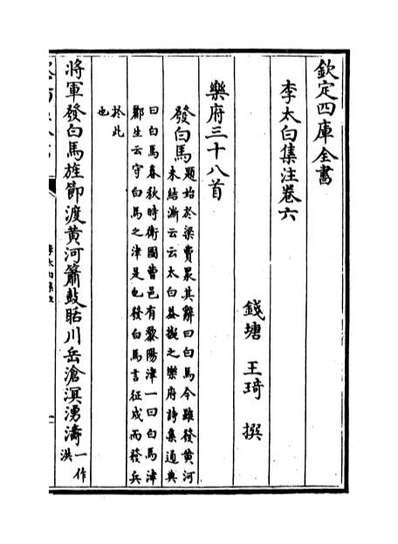 欽定四庫全書
李太白集注卷六
錢塘 王琦 撰
樂府三十八首
發白馬 題始於梁費昶其辭曰白馬今雖發黄河
未結澌云云太白葢擬之樂府詩集通典
曰白馬春秋時衛國曹邑有黎陽津一曰白馬津
酈生云守白馬之津是也發白馬言征戍而發兵
於此
也
將軍發白馬旌節渡黄河簫鼓聒川岳滄溟湧濤 一作
洪